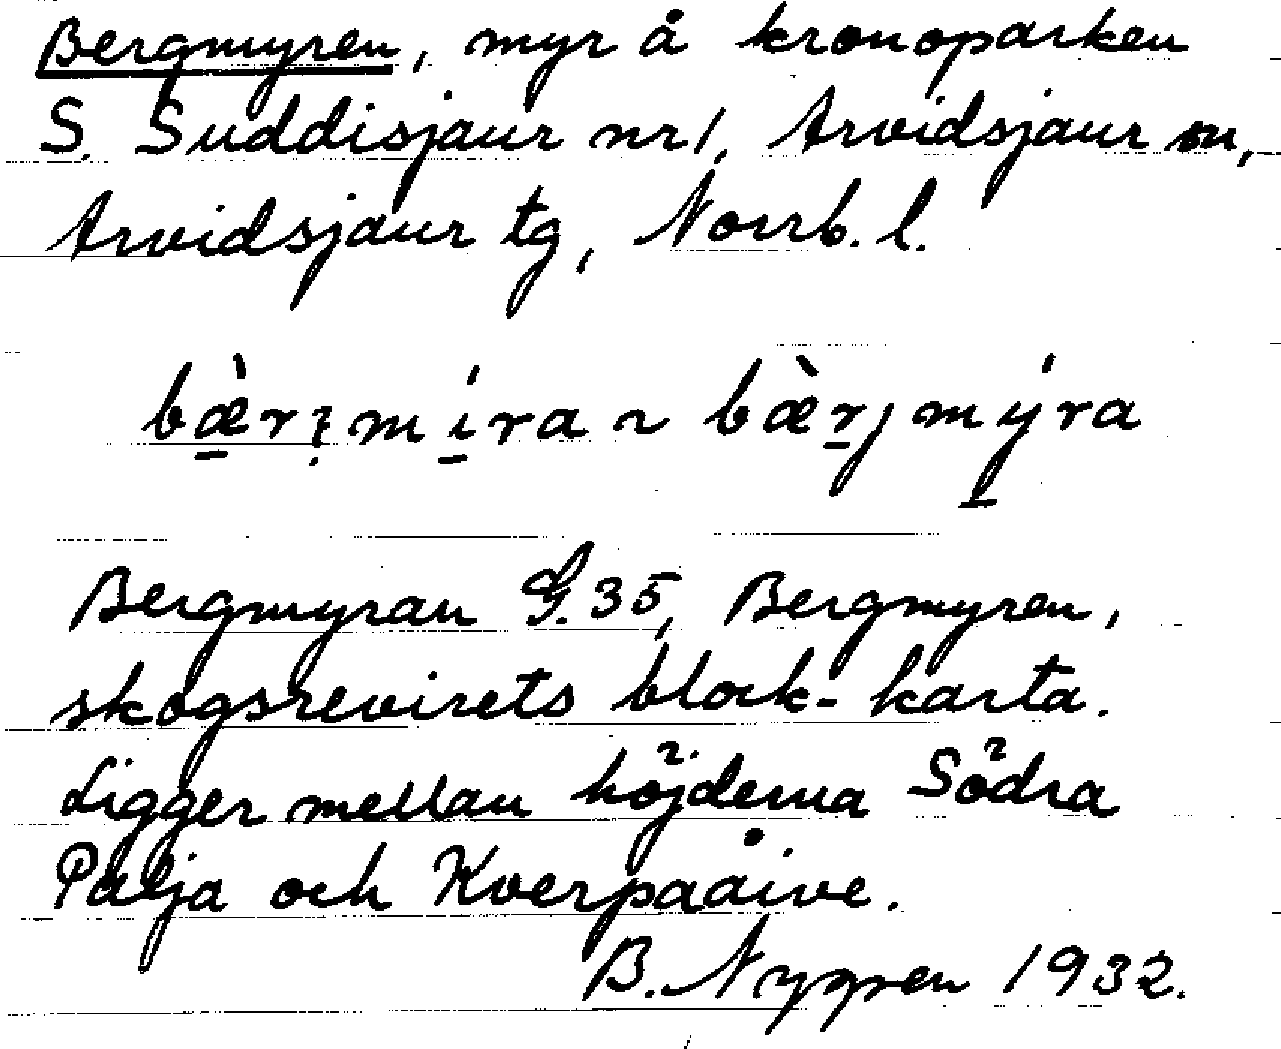 Bergmyren, myr å kronoparken
S. Suddisjaur nr 1, Arvidsjaur sn,
Arvidsjaur tg, Norrb. l.
bæ̀rʒmíra ~ bæ̀rjmýra
Bergmyran G. 35, Bergmyren,
skogsrevirets block-karta.
Ligger mellan höjderna Södra
Palja och Kverpaåive.
B. Nygren 1932.